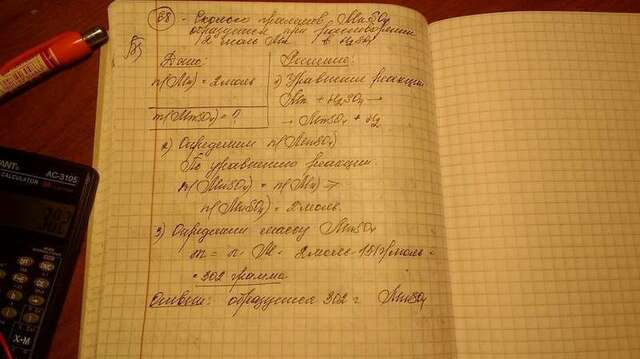 68 - Сколько граммов MnSO4
образуется при растворении
2 моль Mn в H2SO4
Дано:
n(Mn) = 2моль
m(MnSO4) = ?
Решение:
1) Уравнение реакции
Mn + H2SO4 →
→ MnSO4 + H2
2) Определим n(MnSO4)
По уравнению реакции
n(MnSO4) = n(Mn) ⇒
n(MnSO4) = 2моль
3) Определим массу MnSO4
m = n · M = 2моль · 151г/моль =
= 302 грамма
Ответ: образуется 302 г MnSO4
AC-3105
CALCULATOR
X→M